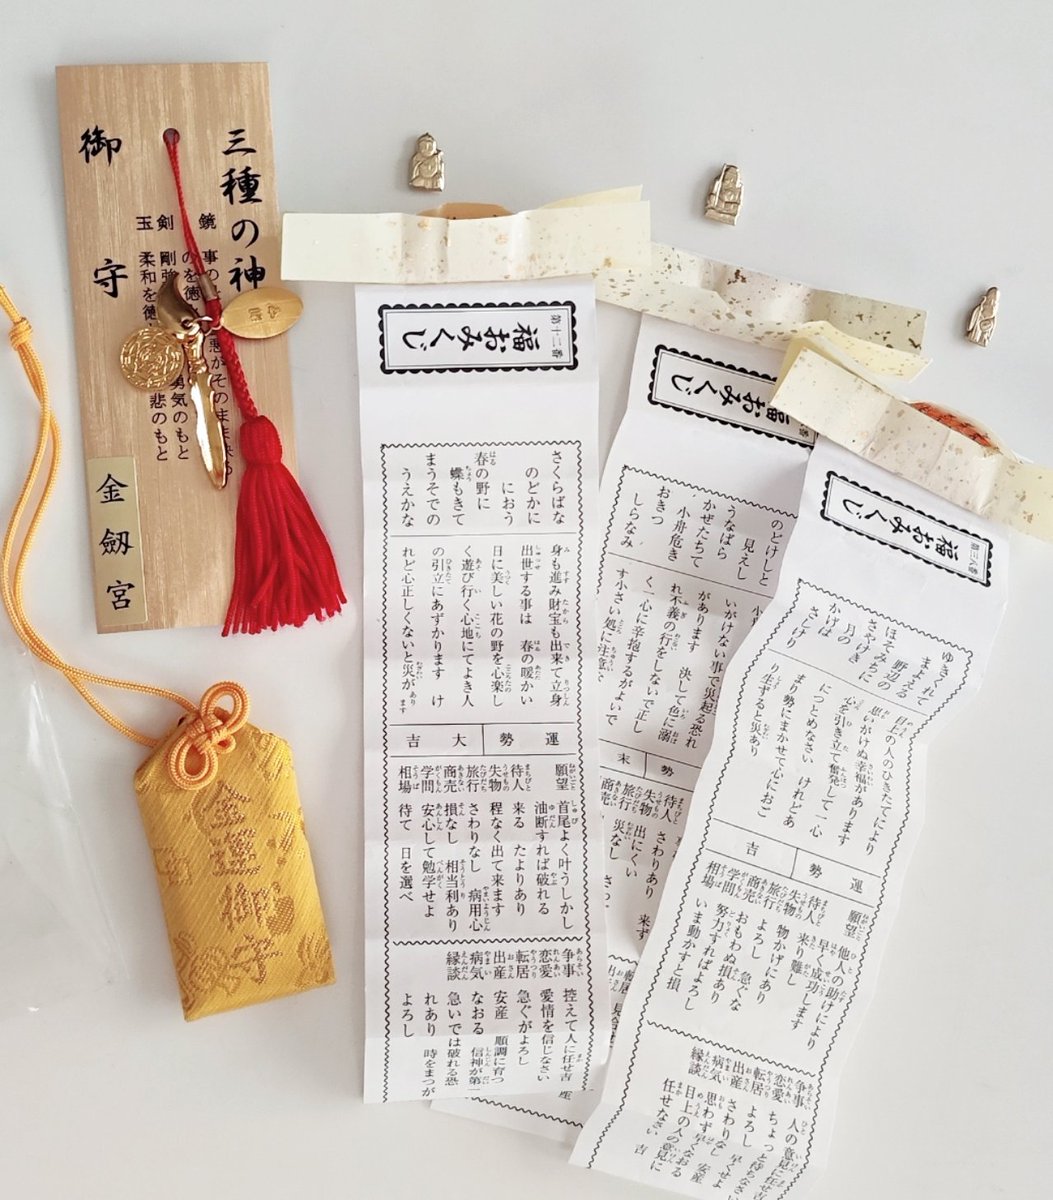 三種の神
御守
鏡
剣
玉
金劔宮
金運御守
第十二番
福おみくじ
さくらばな
のどかに
におう
春の野に
蝶もきて
まうそでの
うえかな
身も進み財宝も出来て立身
出世する事は 春の暖かい
日に美しい花の野を心楽し
く遊び行く心地にてよき人
の引立にあずかります け
れど心正しくないと災があります
運勢 大吉
願望 首尾よく叶うしかし
油断すれば破れる
待人 来る たよりあり
失物 程なく出て来ます
旅行 さわりなし 病用心
商売 損なし 相当利あり
学問 安心して勉学せよ
相場 待て 日を選べ
争事 控えて人に任せ吉
恋愛 愛情を信じなさい
転居 急ぐがよろし
出産 安産 順調に育つ
病気 なおる 信神が第一
縁談 急いでは破れる恐
れあり 時をまつが
よろし
福おみくじ
のどけしと
見えし
うなばら
かぜたちて
小舟危き
おきつ
しらなみ
いがけない事で災起る恐れ
があります 決して色に溺
れ不義の行をしないで正し
く一心に辛抱するがよいで
す小さい処に注意
勢 末
待人 さわりあり 来ず
失物 出にくい
旅行 災なし
商売
転居
第三八番
福おみくじ
ゆきくれて
まよえる
野辺の
ほそみちに
さやけき
月の
かげは
さしけり
目上の人のひきたてにより
思いがけぬ幸福があります
心を引き立て奮発して一心
につとめなさい けれどあ
まり勢にまかせて心におご
り生ずると災あり
運勢 吉
願望 他人の助けにより
早く成功します
待人 来り難し
失物 物かげにあり
旅行 よろし 急ぐな
商売 おもわぬ損あり
学問 努力すればよろし
相場 いま動かすと損
争事 人の意見に任せ吉
恋愛 ちょっと待ちなさい
転居 よろし 早くせよ
出産 さわりなし 安産
病気 思わず早くなおる
縁談 目上の人の意見に
任せなさい 吉